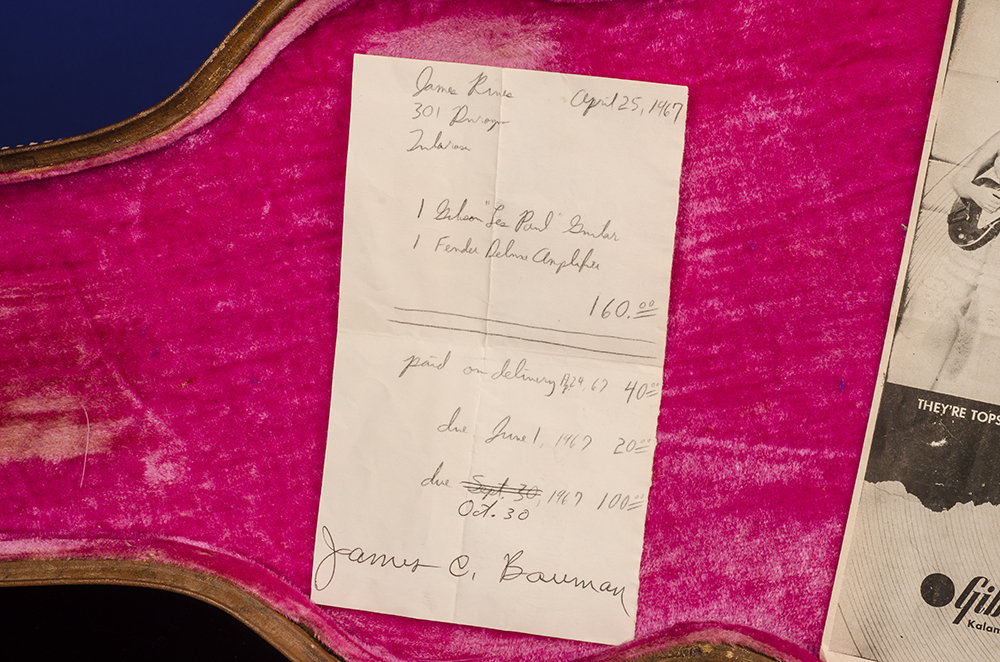 James Rines
April 25, 1967
301
Tularosa
1 Gibson "Les Paul" Guitar
1 Fender Deluxe Amplifier
160.00
paid on delivery Ap 29, 67 40.00
due June 1, 1967 20.00
due Sept. 30, 1967 100.00
Oct. 30
James C. Bowman
THEY'RE TOPS
Gi
Kalam